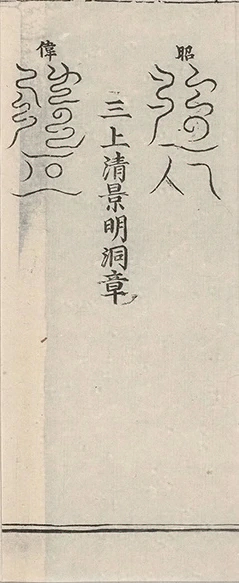 昭
三上清景明洞章
偉